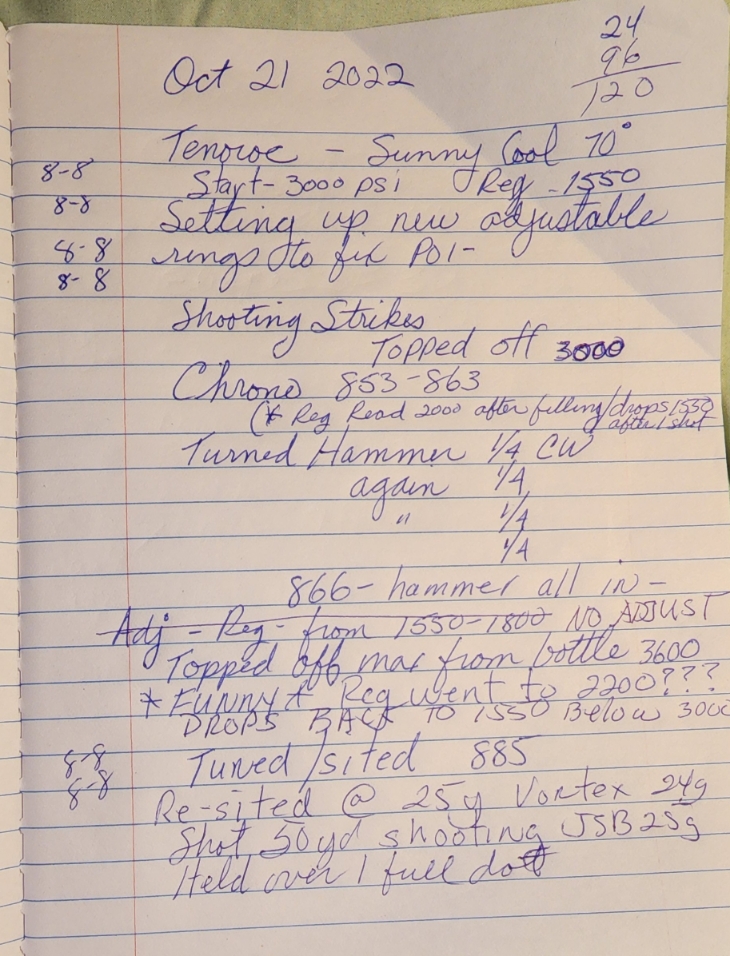 24
96
120
Oct 21 2022
Tenoroc - Sunny Cool 70°
8-8
Start - 3000 psi Reg - 1550
8-8
Setting up new adjustable
8-8
rings to fix POI -
8-8
Shooting Strikes
Topped off 3000
Chrono 853-863
(* Reg Read 2000 after filling/drops 1550
after 1 shot
Turned Hammer 1/4 CW
again 1/4
" 1/4
1/4
866 - hammer all in -
Adj - Reg - from 1550-1800 NO ADJUST
Topped off max from bottle 3600
* FUNNY * Reg went to 2200???
DROPS BACK TO 1550 Below 3000
8-8
Tuned/sited 885
8-8
Re-sited @ 25y Vortex 24g
Shot 50yd shooting JSB 25g
Held over 1 full dot